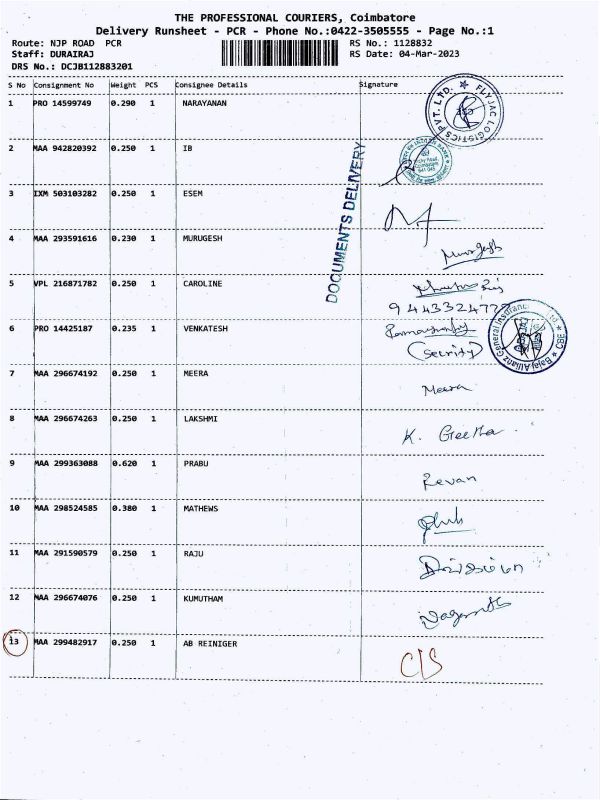 THE PROFESSIONAL COURIERS, Coimbatore
Delivery Runsheet - PCR - Phone No.:0422-3505555 - Page No.:1
Route: NJP ROAD PCR
RS No.: 1128832
Staff: DURAIRAJ
RS Date: 04-Mar-2023
DRS No.: DCJB112883201
S No Consignment No Weight PCS Consignee Details Signature
1 PRO 14599749 0.290 1 NARAYANAN
FLYJAC LOGISTICS PVT. LTD.
2 MAA 942820392 0.250 1 IB
DOCUMENTS DELIVERY
3 IXM 503103282 0.250 1 ESEM
4 MAA 293591616 0.230 1 MURUGESH
Murugesh
5 VPL 216871782 0.250 1 CAROLINE
6 PRO 14425187 0.235 1 VENKATESH
(Security)
Bajaj Allianz General Insurance Ltd. CBE
7 MAA 296674192 0.250 1 MEERA Meera
8 MAA 296674263 0.250 1 LAKSHMI K. Geetha
9 MAA 299363088 0.620 1 PRABU Revan
10 MAA 298524585 0.380 1 MATHEWS
11 MAA 291590579 0.250 1 RAJU
12 MAA 296674076 0.250 1 KUMUTHAM
13 MAA 299482917 0.250 1 AB REINIGER C/S